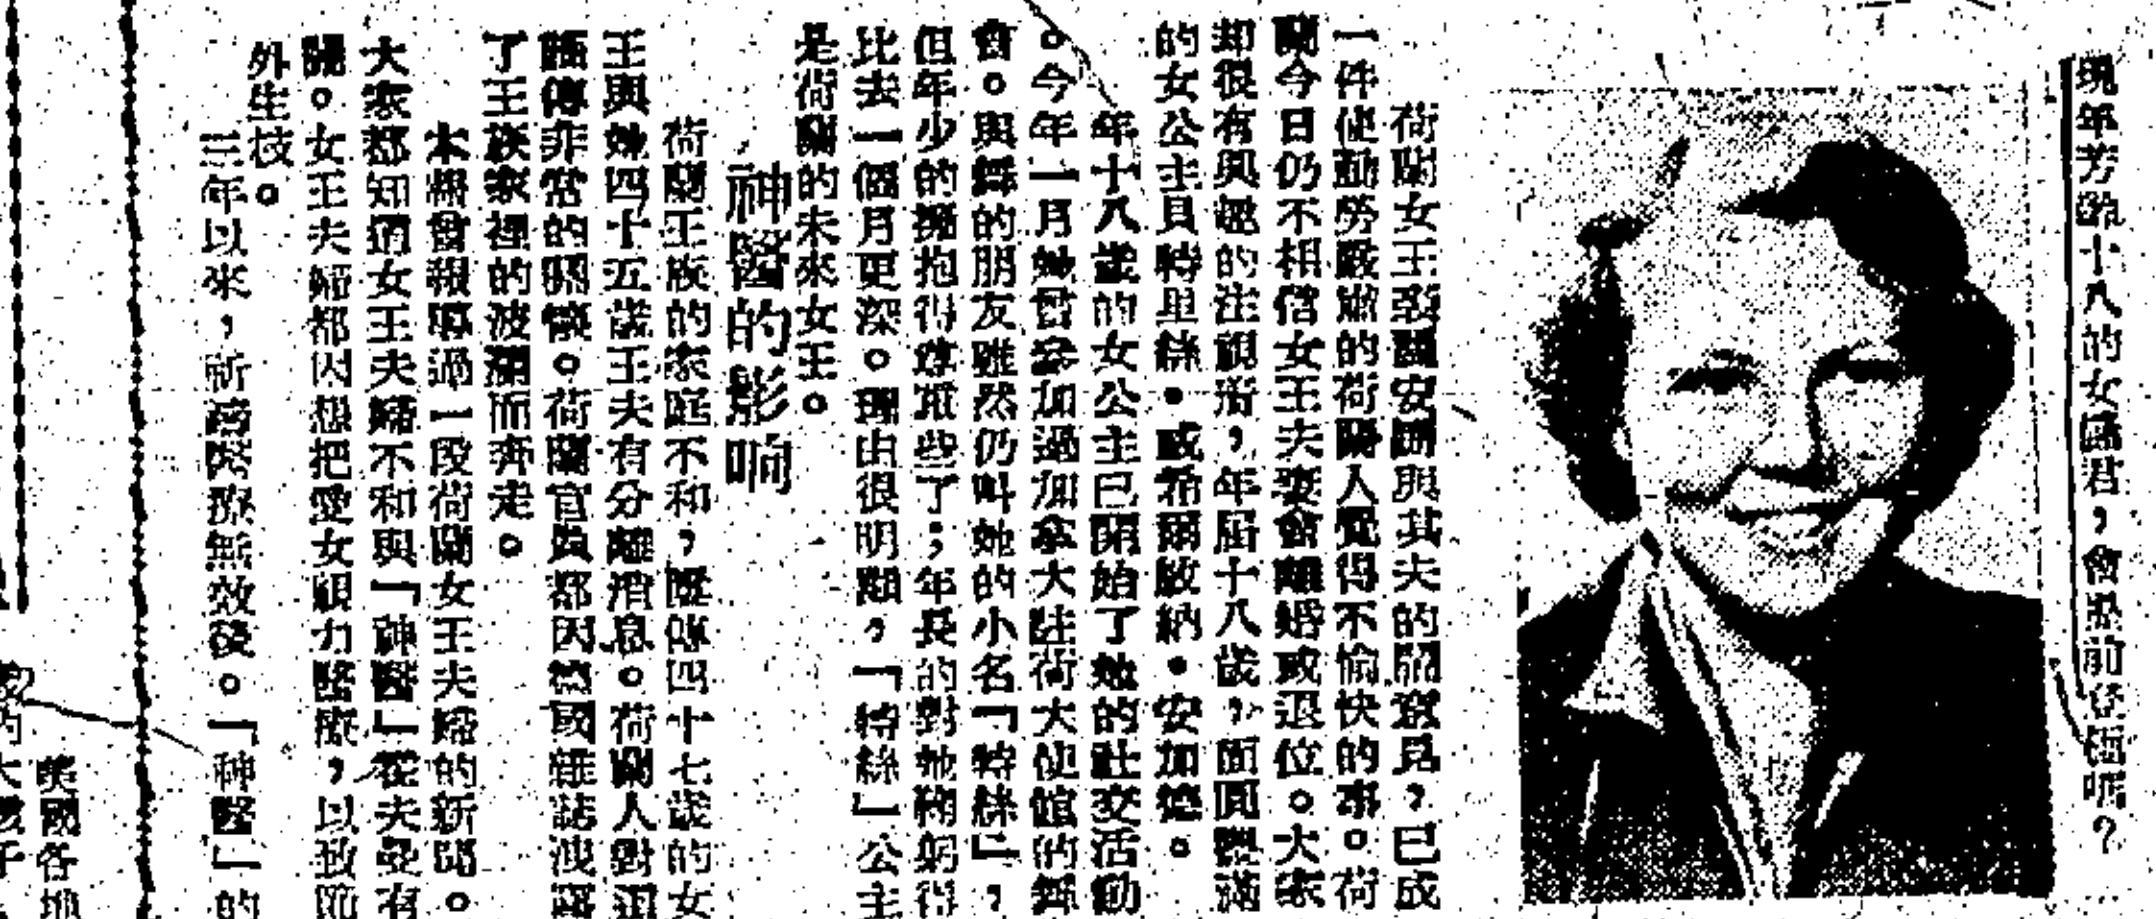 現年芳齡十八的女儲君，會提前登極嗎？
荷蘭女王茱麗安娜與其夫的鬧意見，已成
一件使勤勞嚴肅的荷蘭人覺得不愉快的事。荷
蘭今日仍不相信女王夫妻會離婚或退位。大家
却很有興趣的注視着，年屆十八歲，面圓豐滿
的女公主貝特里絲・威希爾敏納・安加德。
年十八歲的女公主已開始了她的社交活動
。今年一月她曾參加過加拿大駐荷大使館的舞
會。與舞的朋友雖然仍叫她的小名「特絲」，
但年少的擁抱得尊重些了；年長的對她鞠躬得
比去一個月更深。理由很明顯，「特絲」公主
是荷蘭的未來女王。
神醫的影响
荷蘭王族的家庭不和，歷傳四十七歲的女
王與她四十五歲王夫有分離消息。荷蘭人對這
謠傳非常的關懷。荷蘭官員都因德國雜誌洩露
了王族家裡的波瀾而奔走。
本報曾報導過一段荷蘭女王夫婦的新聞。
大家都知道女王夫婦不和與「神醫」霍夫曼有
關。女王夫婦都因想把愛女眼力醫療，以致節
外生枝。
三年以來，所謂醫療無效後。「神醫」的
美國各地